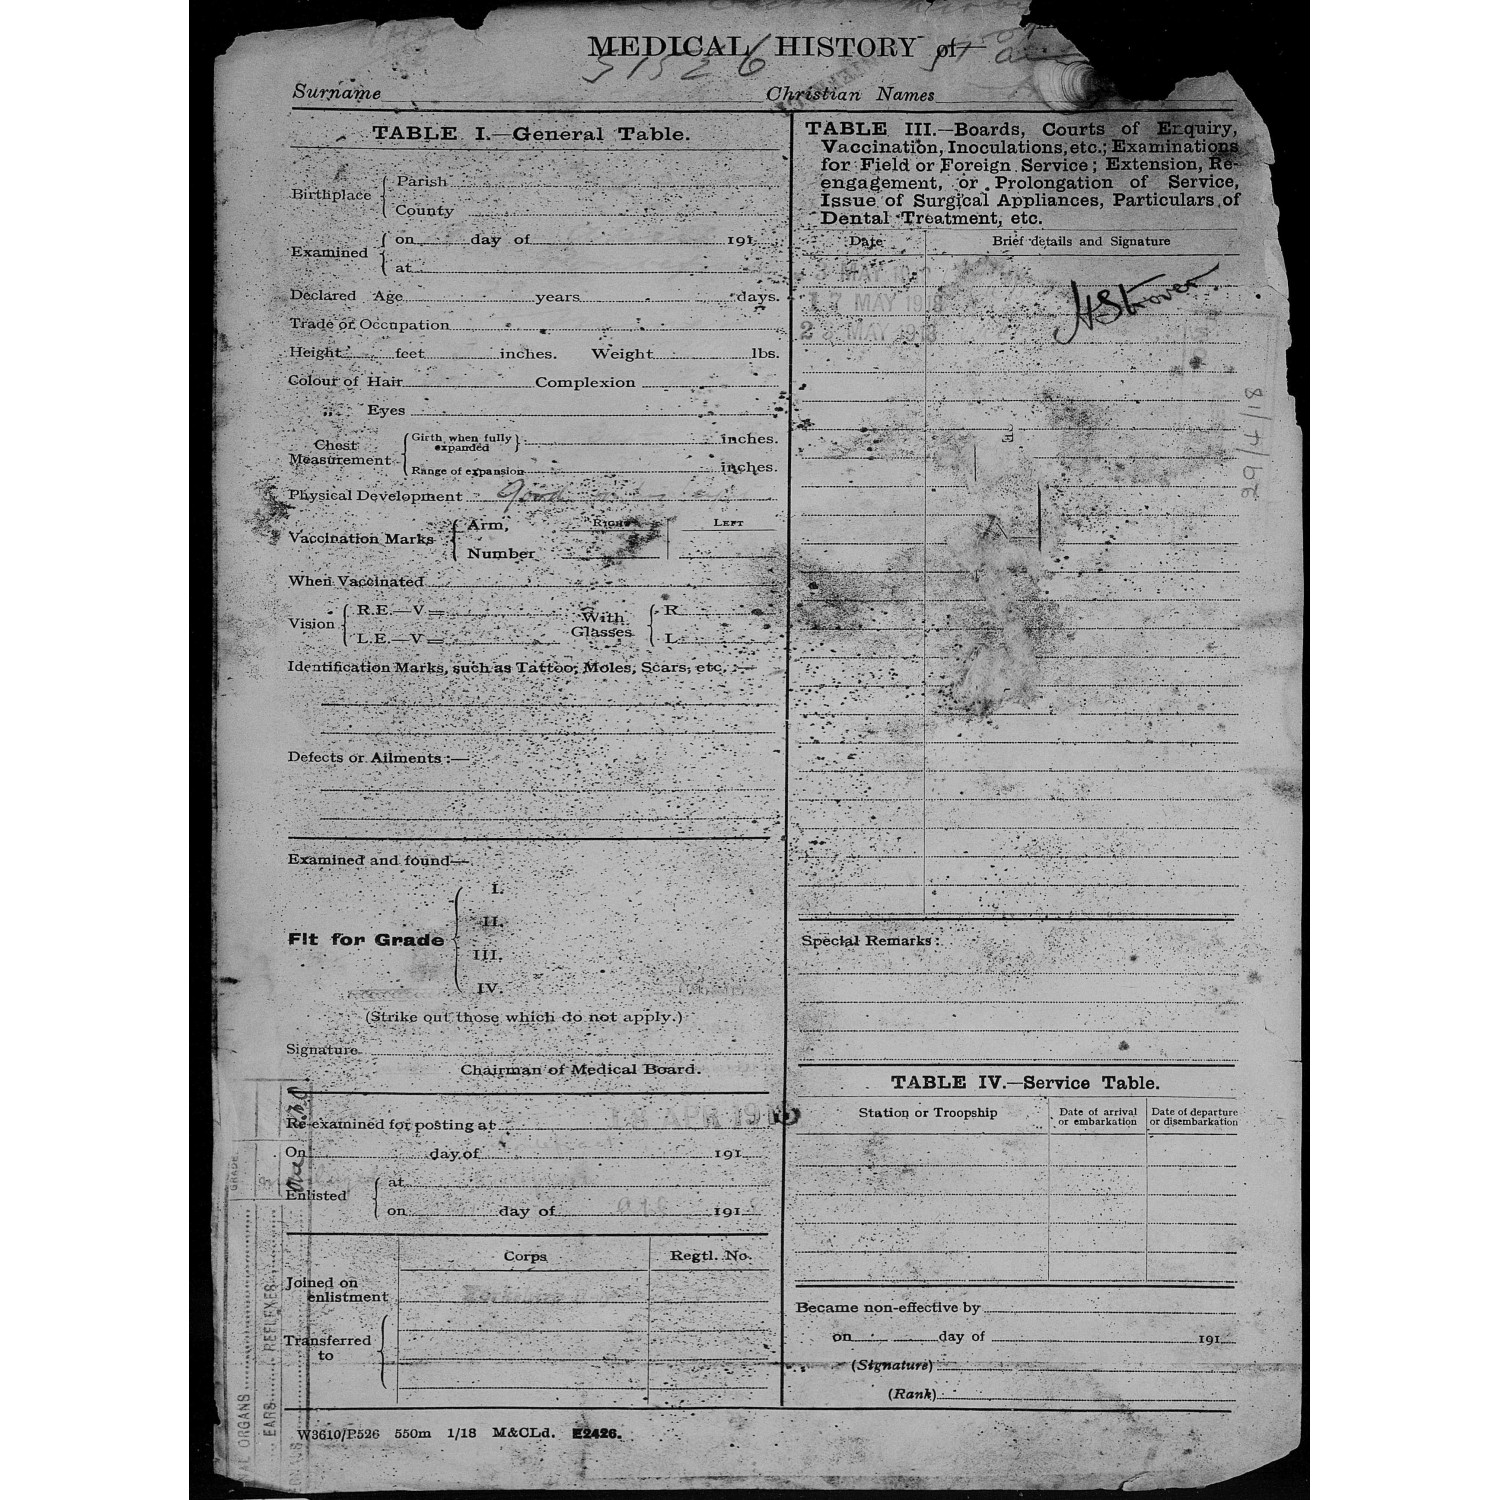 MEDICAL HISTORY of
51526
Surname
Christian Names
TABLE I.—General Table.
Birthplace
Parish
County
Examined
on day of 191
at
Declared Age years days.
Trade or Occupation
Height feet inches. Weight lbs.
Colour of Hair Complexion
„ Eyes
Chest Measurement
Girth when fully expanded inches.
Range of expansion inches.
Physical Development Good
Vaccination Marks
Arm, RIGHT LEFT
Number
When Vaccinated
Vision
R.E.—V=
L.E.—V=
With Glasses
R
L
Identification Marks, such as Tattoo, Moles, Scars, etc. :—
Defects or Ailments :—
Examined and found—
Fit for Grade
I.
II.
III.
IV.
(Strike out those which do not apply.)
Signature
Chairman of Medical Board.
Re-examined for posting at
APR 191
On day of 191
Enlisted
at
on day of 191
Corps Regtl. No.
Joined on enlistment
Transferred to
W3610/P526 550m 1/18 M&CLd. E2426.
TABLE III.—Boards, Courts of Enquiry,
Vaccination, Inoculations, etc.; Examinations
for Field or Foreign Service; Extension, Re-
engagement, or Prolongation of Service,
Issue of Surgical Appliances, Particulars of
Dental Treatment, etc.
Date Brief details and Signature
MAY
17 MAY 1918
2 MAY 1918
HStrover.
Special Remarks:
TABLE IV.—Service Table.
Station or Troopship
Date of arrival or embarkation
Date of departure or disembarkation
Became non-effective by
on day of 191
(Signature)
(Rank)
GRADE
ORGANS
EARS REFLEXES